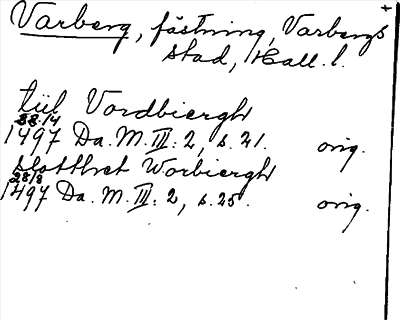 Varberg, fästning, Varbergs +
stad, Hall. l.
tiil Vordbiergh
28/4
1497 Da. M. III: 2, s. 21. orig.
slotthet Worbiergh
28/8
1497 Da. M. III: 2, s. 25. orig.